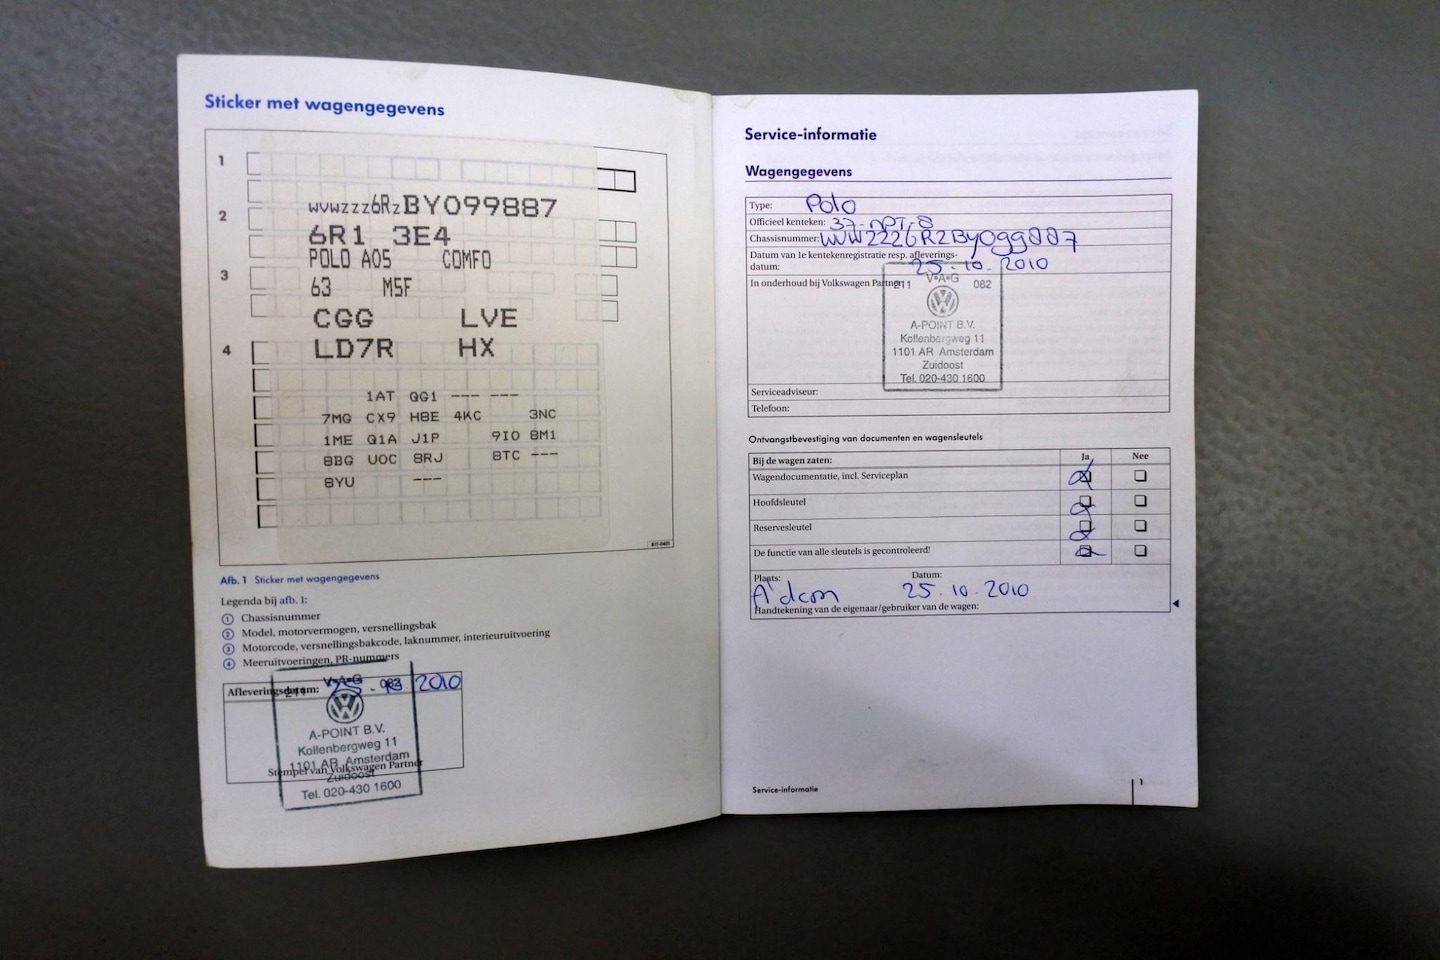 Sticker met wagengegevens
1
WVWZZZ6RZBY099887
2
6R1 3E4
POLO A05 COMFO
3
63 M5F
CGG LVE
4
LD7R HX
1AT QG1 --- ---
7MG CX9 H8E 4KC 3NC
1ME Q1A J1P 9IO 8M1
8BG UOC 8RJ 8TC ---
8YU ---
Afb. 1 Sticker met wagengegevens
Legenda bij afb. 1:
1 Chassisnummer
2 Model, motorvermogen, versnellingsbak
3 Motorcode, versnellingsbakcode, laknummer, interieuruitvoering
4 Meeruitvoeringen, PR-nummers
Afleveringsdatum: 25.10.2010
211 V•A•G 082
A-POINT B.V.
Kollenbergweg 11
1101 AR Amsterdam
Stempel van Volkswagen Partner
Zuidoost
Tel. 020-430 1600
Service-informatie
Wagengegevens
Type: Polo
Officieel kenteken: 37-NPT-8
Chassisnummer: WVWZZZ6RZBY099887
Datum van 1e kentekenregistratie resp. afleverings-
datum: 25.10.2010
In onderhoud bij Volkswagen Partner:
211 V•A•G 082
A-POINT B.V.
Kollenbergweg 11
1101 AR Amsterdam
Zuidoost
Tel. 020-430 1600
Serviceadviseur:
Telefoon:
Ontvangstbevestiging van documenten en wagensleutels
Bij de wagen zaten: Ja Nee
Wagendocumentatie, incl. Serviceplan
Hoofdsleutel
Reservesleutel
De functie van alle sleutels is gecontroleerd!
Plaats: Datum:
A'dam 25.10.2010
Handtekening van de eigenaar/gebruiker van de wagen:
Service-informatie 1